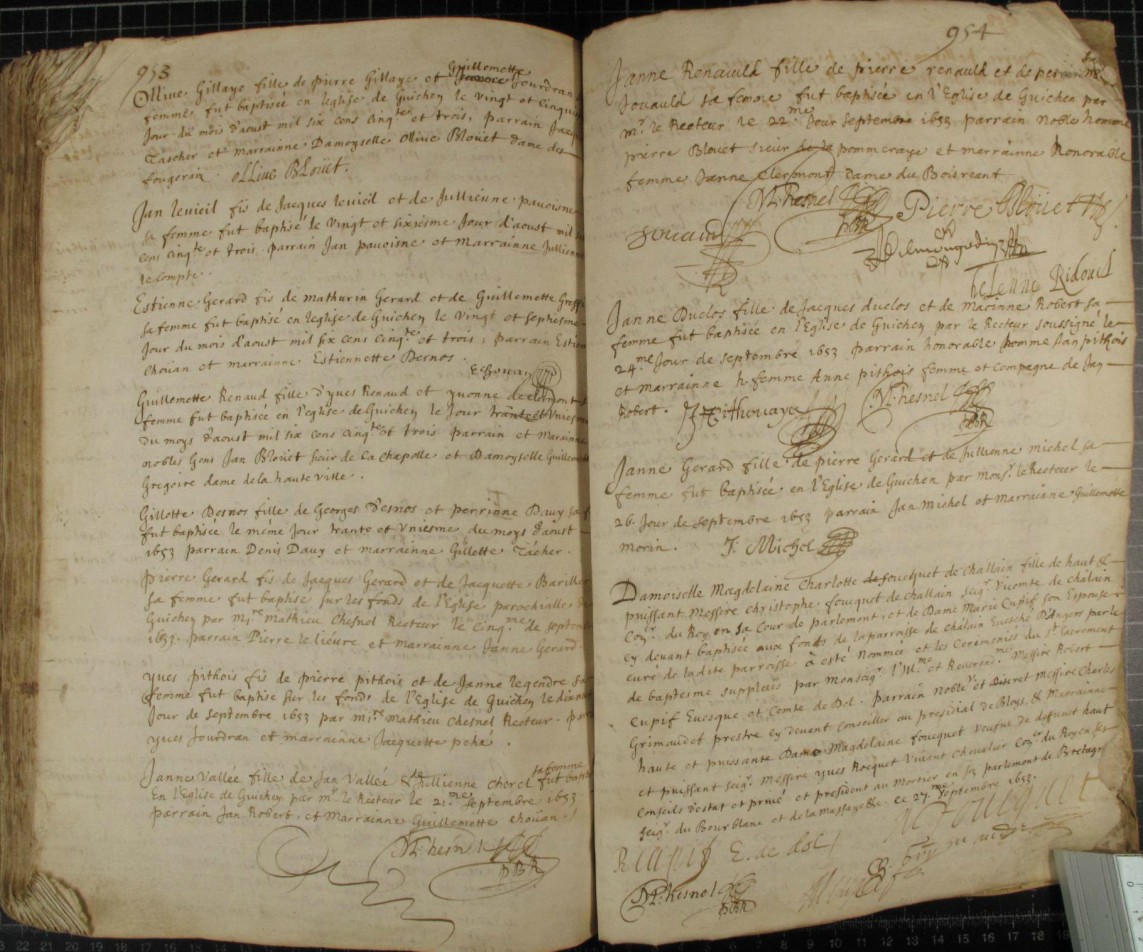 953
Guillemette
Ollive Gillaye fille de pierre Gillaye et Jourdran
femme, fut baptisée en leglise de Guichen le vingt et cinquie
Jour du mois d'aoust mil six cens cinqte et trois, parrain Jacq
Tascher et marrainne Damoyselle Olive Blouet dame des
fougerais. olliue BLouet.
Jan levieil fis de Jacques levieil et de Jullienne pavoisne
sa femme fut baptisé le vingt et sixiesme Jour d'aoust mil six
cens cinqte et trois, parrain Jan pavoisne et Marrainne Jullienne
le compte.
Estienne Gerard fis de Mathurin Gerard et de Guillemette
sa femme fut baptisé en leglise de Guichen le vingt et septiesme
Jour du mois d'aoust mil six cens cinqte et trois, parrain Estien
Chouan et marrainne Estiennette Dernos.
E Chouan
Guillemette Renaud fille d'yves Renaud et yvonne
femme fut baptisée en l'eglise de Guichen le Jour trante et Vniesme
du moys d'aoust mil six cens cinqte et trois parrain et Marainne
nobles Gens Jan Blouet sieur de La chapelle et Damoyselle Guillemette
Gregoire dame de la haute ville.
Gillotte Desnos fille de Georges Desnos et perrinne Davy sa f
fut baptisée le même Jour trante et vniesme du moys d'aoust
1653 parrain Denis Davy et marrainne Gillotte Tâcher.
Pierre Gerard fis de Jacques Gerard et de Jacquette Bariller
sa femme fut baptisé sur les fonds de l'Eglise parochialle de
Guichen par Mire Mathieu Chesnel Recteur le cinqme de septem
1653. parrain Pierre le lièvre et marrainne Janne Gerard.
yves pithois fis de pierre pithois et de Janne legendre sa
femme fut baptisé sur les fonds de l'Eglise de Guichen le
Jour de Septembre 1653 par Mire Mathieu Chesnel Recteur. par
yves Jourdran et marrainne Jacquette pché.
sa femme
Janne Vallée fille de Jan Vallée et Jullienne Chorel fut bapti
En l'Eglise de Guichen par mr le Recteur le 21me Septembre 1653
parrain Jan Robert, et Marrainne Guillemette chouan.
M. Chesnel
pbR
954
Janne Renauld fille de pierre renauld et de
Jouauld sa femme fut baptisée en l'Eglise de Guichen par
mr. le Recteur le 22.me Jour Septembre 1653 parrain noble homme
pierre Blouet sieur de la pommeraye et marrainne honorable
femme Janne Clermont Dame du Boisreant
M. Chesnel
pbR
Pierre Blouet
Jouain
helenne Ridouel
Janne Duclos fille de Jacques duclos et de Marinne Robert sa
femme fut baptisée en l'Eglise de Guichen par le Recteur soussigné le
24.me Jour de septembre 1653 parrain honorable homme Jan pithois
et marrainne h. femme Anne pithois femme et compagne de Jan
Robert.
M. Chesnel
pbR
Janne Gerard fille de pierre Gerard et de Jullienne michel sa
femme fut baptisée en l'Eglise de Guichen par Monsr. le Recteur le
26. Jour de Septembre 1653 parrain Jan Michel et Marrainne Guillemette
morin. J. Michel
Damoiselle Magdelaine Charlotte foucquet de Challain fille de haut &
puissant Messire Christophe foucquet de Challain seigr. Vicomte de chalain
Coner. du Roy en sa Cour de parlement, et de Dame Marie Cupif son Espouse
cy devant baptisée aux fonds de la parroisse de chalain Evesché D'Angers par le
curé de ladite parroisse a esté Nommée et les Ceremonies du St. sacrement
de baptesme suppleés par Monseigr. l'Illme et Reverendme Messire Robert
Cupif Evesque et Comte de Dol. Parrain Noble et Discret Messire Charles
Grimaudet prestre cy devant Conseiller au presidial de Bloys, & Marrainne
haute et puissante Dame Magdelaine foucquet veufve de defunct haut
et puissant seigr. Messire yves Rocquet Vivant Chevalier Coner. du Roy en ses
Conseils d'estat et privé et president au Mortier en son parlement de Bretagne
seigr. du Bourblanc et de la ce 27.me Septembre 1653.
M foucquet
R Cupif E. de dol
M. Chesnel
pbR